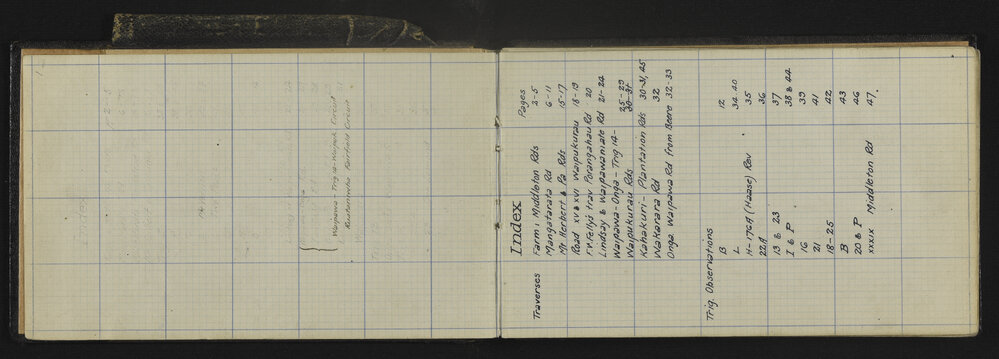 Waipawa - Trig 14 - Waipuk. Circuit
Raukawa Fairfield Circuit
Index
Pages
Traverses
Farm: Middleton Rds 2-5
Mangatarata Rd 6-11
Mt Herbert & Pa Rds 15-17
Road XV & XVI Waipukurau 18-19
F.V. Kelly's trav Porangahau Rd 20
Lindsay & Waipawamate Rd 21-24
Waipawa-Onga-Trig 14- 25-29
Waipukurau Rds 30-31
Kahakuri- Plantation Rds 30-31, 45
Wakarara Rd 32
Onga. Waipawa Rd from Beere 32-33
Trig. Observations
B 12
L 34. 40
H-176A (Haase) Rev 35
22A 36
13 & 23 37
I & P 38 & 44
16 39
21 41
18-25 42
B 43
20 & P 46
XXXIX Middleton Rd 47